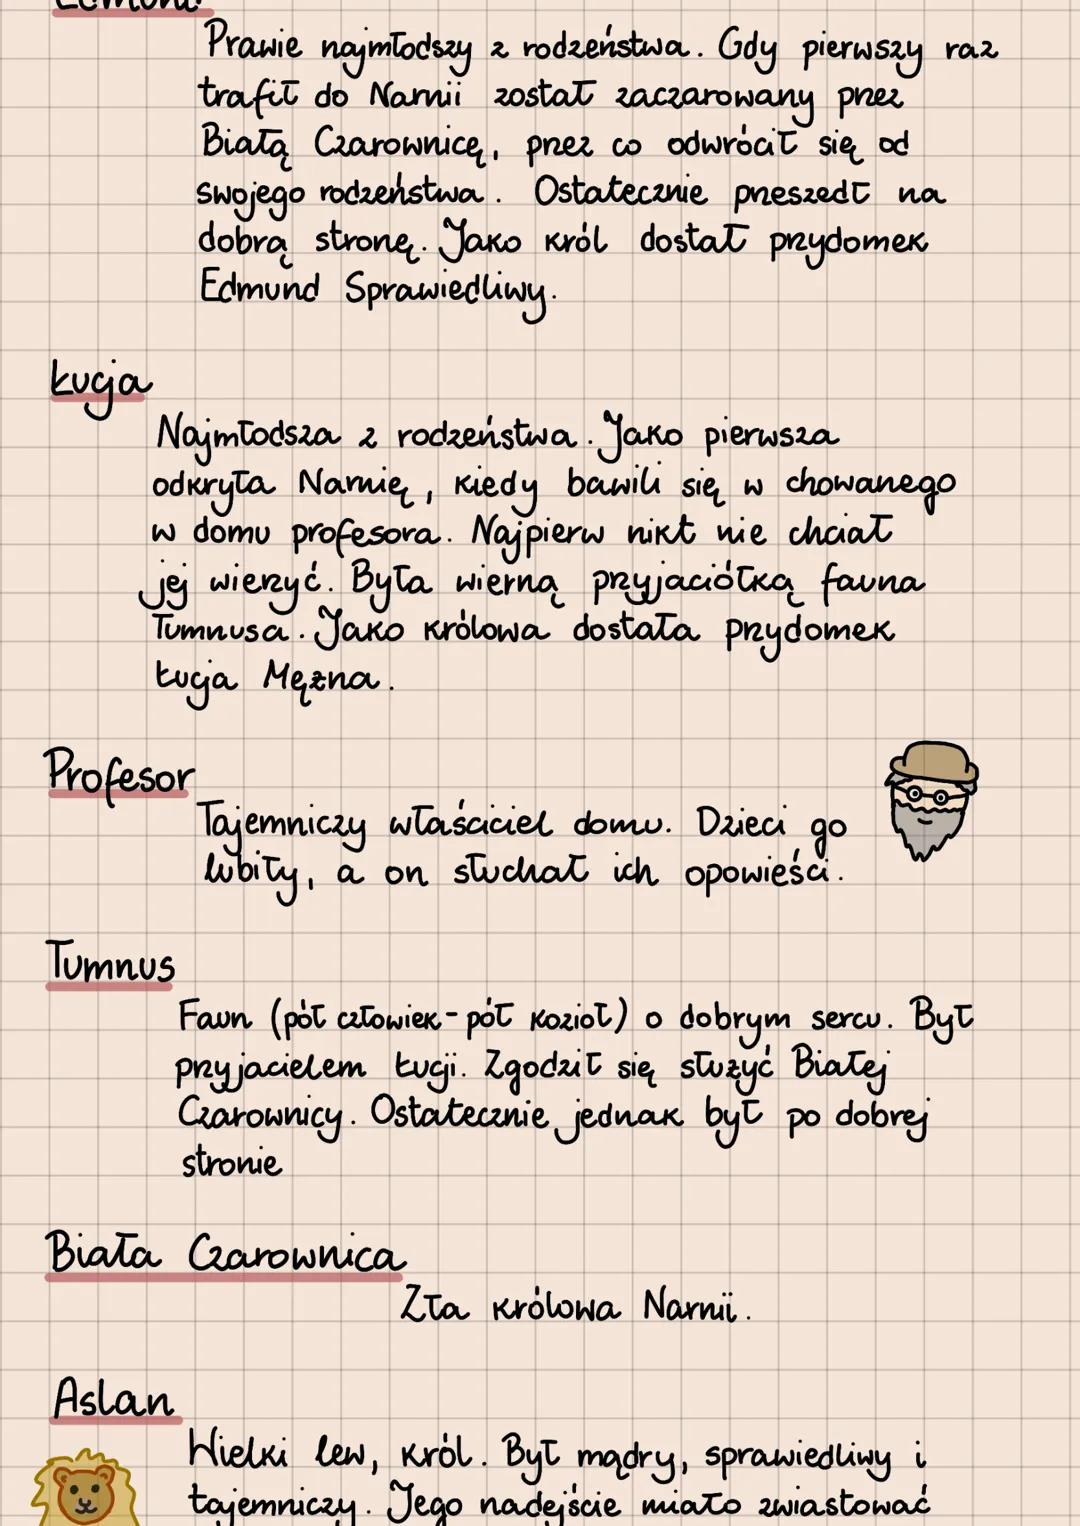 Edmund
Prawie najmłodszy z rodzeństwa. Gdy pierwszy raz
trafił do Narnii został zaczarowany przez
Białą Czarownicę, przez co odwrócił się od
swojego rodzeństwa. Ostatecznie przeszedł na
dobrą stronę. Jako król dostał przydomek
Edmund Sprawiedliwy.
Łucja
Najmłodsza z rodzeństwa. Jako pierwsza
odkryła Narnię, kiedy bawili się w chowanego
w domu profesora. Najpierw nikt nie chciał
jej wierzyć. Była wierną przyjaciółką fauna
Tumnusa. Jako królowa dostała przydomek
Łucja Mężna.
Profesor
Tajemniczy właściciel domu. Dzieci go
lubiły, a on słuchał ich opowieści.
Tumnus
Faun (pół człowiek-pół kozioł) o dobrym sercu. Był
przyjacielem Łucji. Zgodził się służyć Białej
Czarownicy. Ostatecznie jednak był po dobrej
stronie
Biała Czarownica
Zła królowa Narnii.
Aslan
Wielki lew, król. Był mądry, sprawiedliwy i
tajemniczy. Jego nadejście miało zwiastować